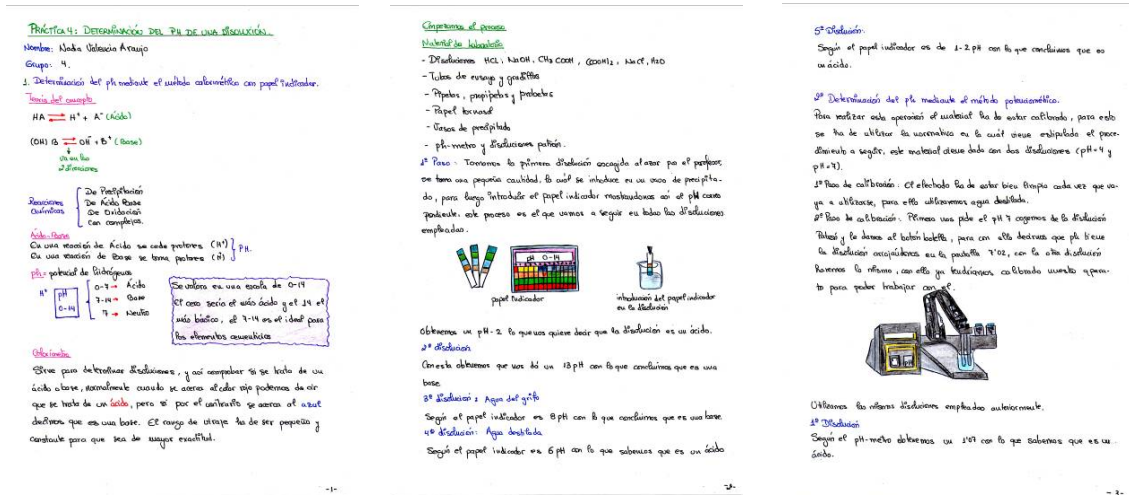 PRÁCTICA 4: DETERMINACIÓN DEL PH DE UNA DISOLUCIÓN.
Nombre: Nadia Valencia Araujo
Grupo: 4.
1. Determinación del ph mediante el método colorimétrico con papel indicador.
Teoría del concepto
HA ⇌ H⁺ + A⁻ (Ácido)
(OH) B ⇌ OH⁻ + B⁺ (Base)
va en las
2 direcciones
Reacciones
Químicas
De Precipitación
De Ácido Base
De Oxidación
Con complejos.
Ácido-Base
En una reacción de Ácido se cede protones (H⁺)
En una reacción de Base se toma protones (H⁺)
PH.
ph = potencial de hidrógenos
H⁺
pH
0-14
0-7 → Ácido
7-14 → Base
7 → Neutro
Se valora en una escala de 0-14
El cero sería el más ácido y el 14 el
más básico, el 7-14 es el ideal para
los elementos cementicios
Colorimetría
Sirve para determinar disoluciones, y así comprobar si se trata de un
ácido o base, normalmente cuando se acerca al color rojo podemos decir
que se trata de un ácido, pero si por el contrario se acerca al azul
decimos que es una base. El rango de viraje ha de ser pequeño y
constante para que sea de mayor exactitud.
-1-
Empezamos el proceso
Material de laboratorio
- Disoluciones HCl, NaOH, CH3 COOH, (COOH)2, NaCl, H2O
- Tubos de ensayo y gradillas
- Pipetas, propipetas y probetas
- Papel tornasol
- Vasos de precipitado
- ph-metro y disoluciones patrón.
1º Paso: Tomamos la primera disolución escogida al azar por el profesor,
se toma una pequeña cantidad, la cuál se introduce en un vaso de precipita-
do, para luego introducir el papel indicador mostrandonos así el pH corres
pondiente, este proceso es el que vamos a seguir en todas las disoluciones
empleadas.
pH 0-14
papel indicador
introducción del papel indicador
en la disolución
Obtenemos un pH-2 lo que nos quiere decir que la disolución es un ácido.
2ª disolución
Con esta obtenemos que nos dá un 13 pH con lo que concluimos que es una
base
3ª disolución: Agua del grifo
Según el papel indicador es 8 pH con lo que concluimos que es una base.
4ª disolución: Agua destilada
Según el papel indicador es 6 pH con lo que sabemos que es un ácido
5ª Disolución.
Según el papel indicador es de 1-2 pH con lo que concluimos que es
un ácido.
2º Determinación del ph mediante el método potenciométrico.
Para realizar esta operación el material ha de estar calibrado, para esto
se ha de utilizar la normativa en la cuál viene estipulado el proce-
dimiento a seguir, este material viene dado con dos disoluciones (pH=4 y
pH=7).
1º Paso de calibración: El electrodo ha de estar bien limpio cada vez que va-
ya a utilizarse, para ello utilizaremos agua destilada.
2º Paso de calibración: Primero nos pide el pH 7 cogemos de la disolución
Patrón y le damos al botón botella, para con ello decirnos que ph tiene
la disolución arrojándonos en la pantalla 7'02, con la otra disolución
haremos lo mismo, con ello ya tendríamos calibrado nuestro apara-
to para poder trabajar con el.
Utilizamos las mismas disoluciones empleadas anteriormente.
1ª Disolución
Según el pH-metro obtenemos un 1'07 con lo que sabemos que es un
ácido.